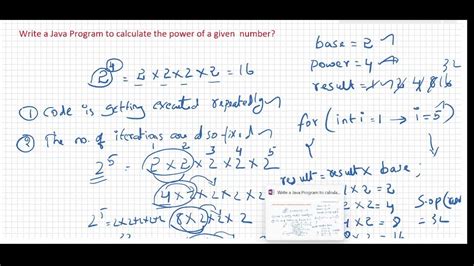 Write a Java Program to calculate the power of a given number?
2^4 = 2 x 2 x 2 x 2 = 16
① Code is getting executed repeatedly
② The no. of iterations are also fixed
1 2 3 4 5
2^5 = 2 x 2 x 2 x 2 x 2
4 x 2 x 2 x 2
2^5 = 2x2x2x2x2 8 x 2 x 2
base = 2
power = 4
32
result = 1 2 4 8 16
for (int i = 1 → i = 5)
result = result x base;
Write a Java Program to calcula...
1 x 2 = 2
2 x 2 = 4
4 x 2 = 8
S.op(
= 32